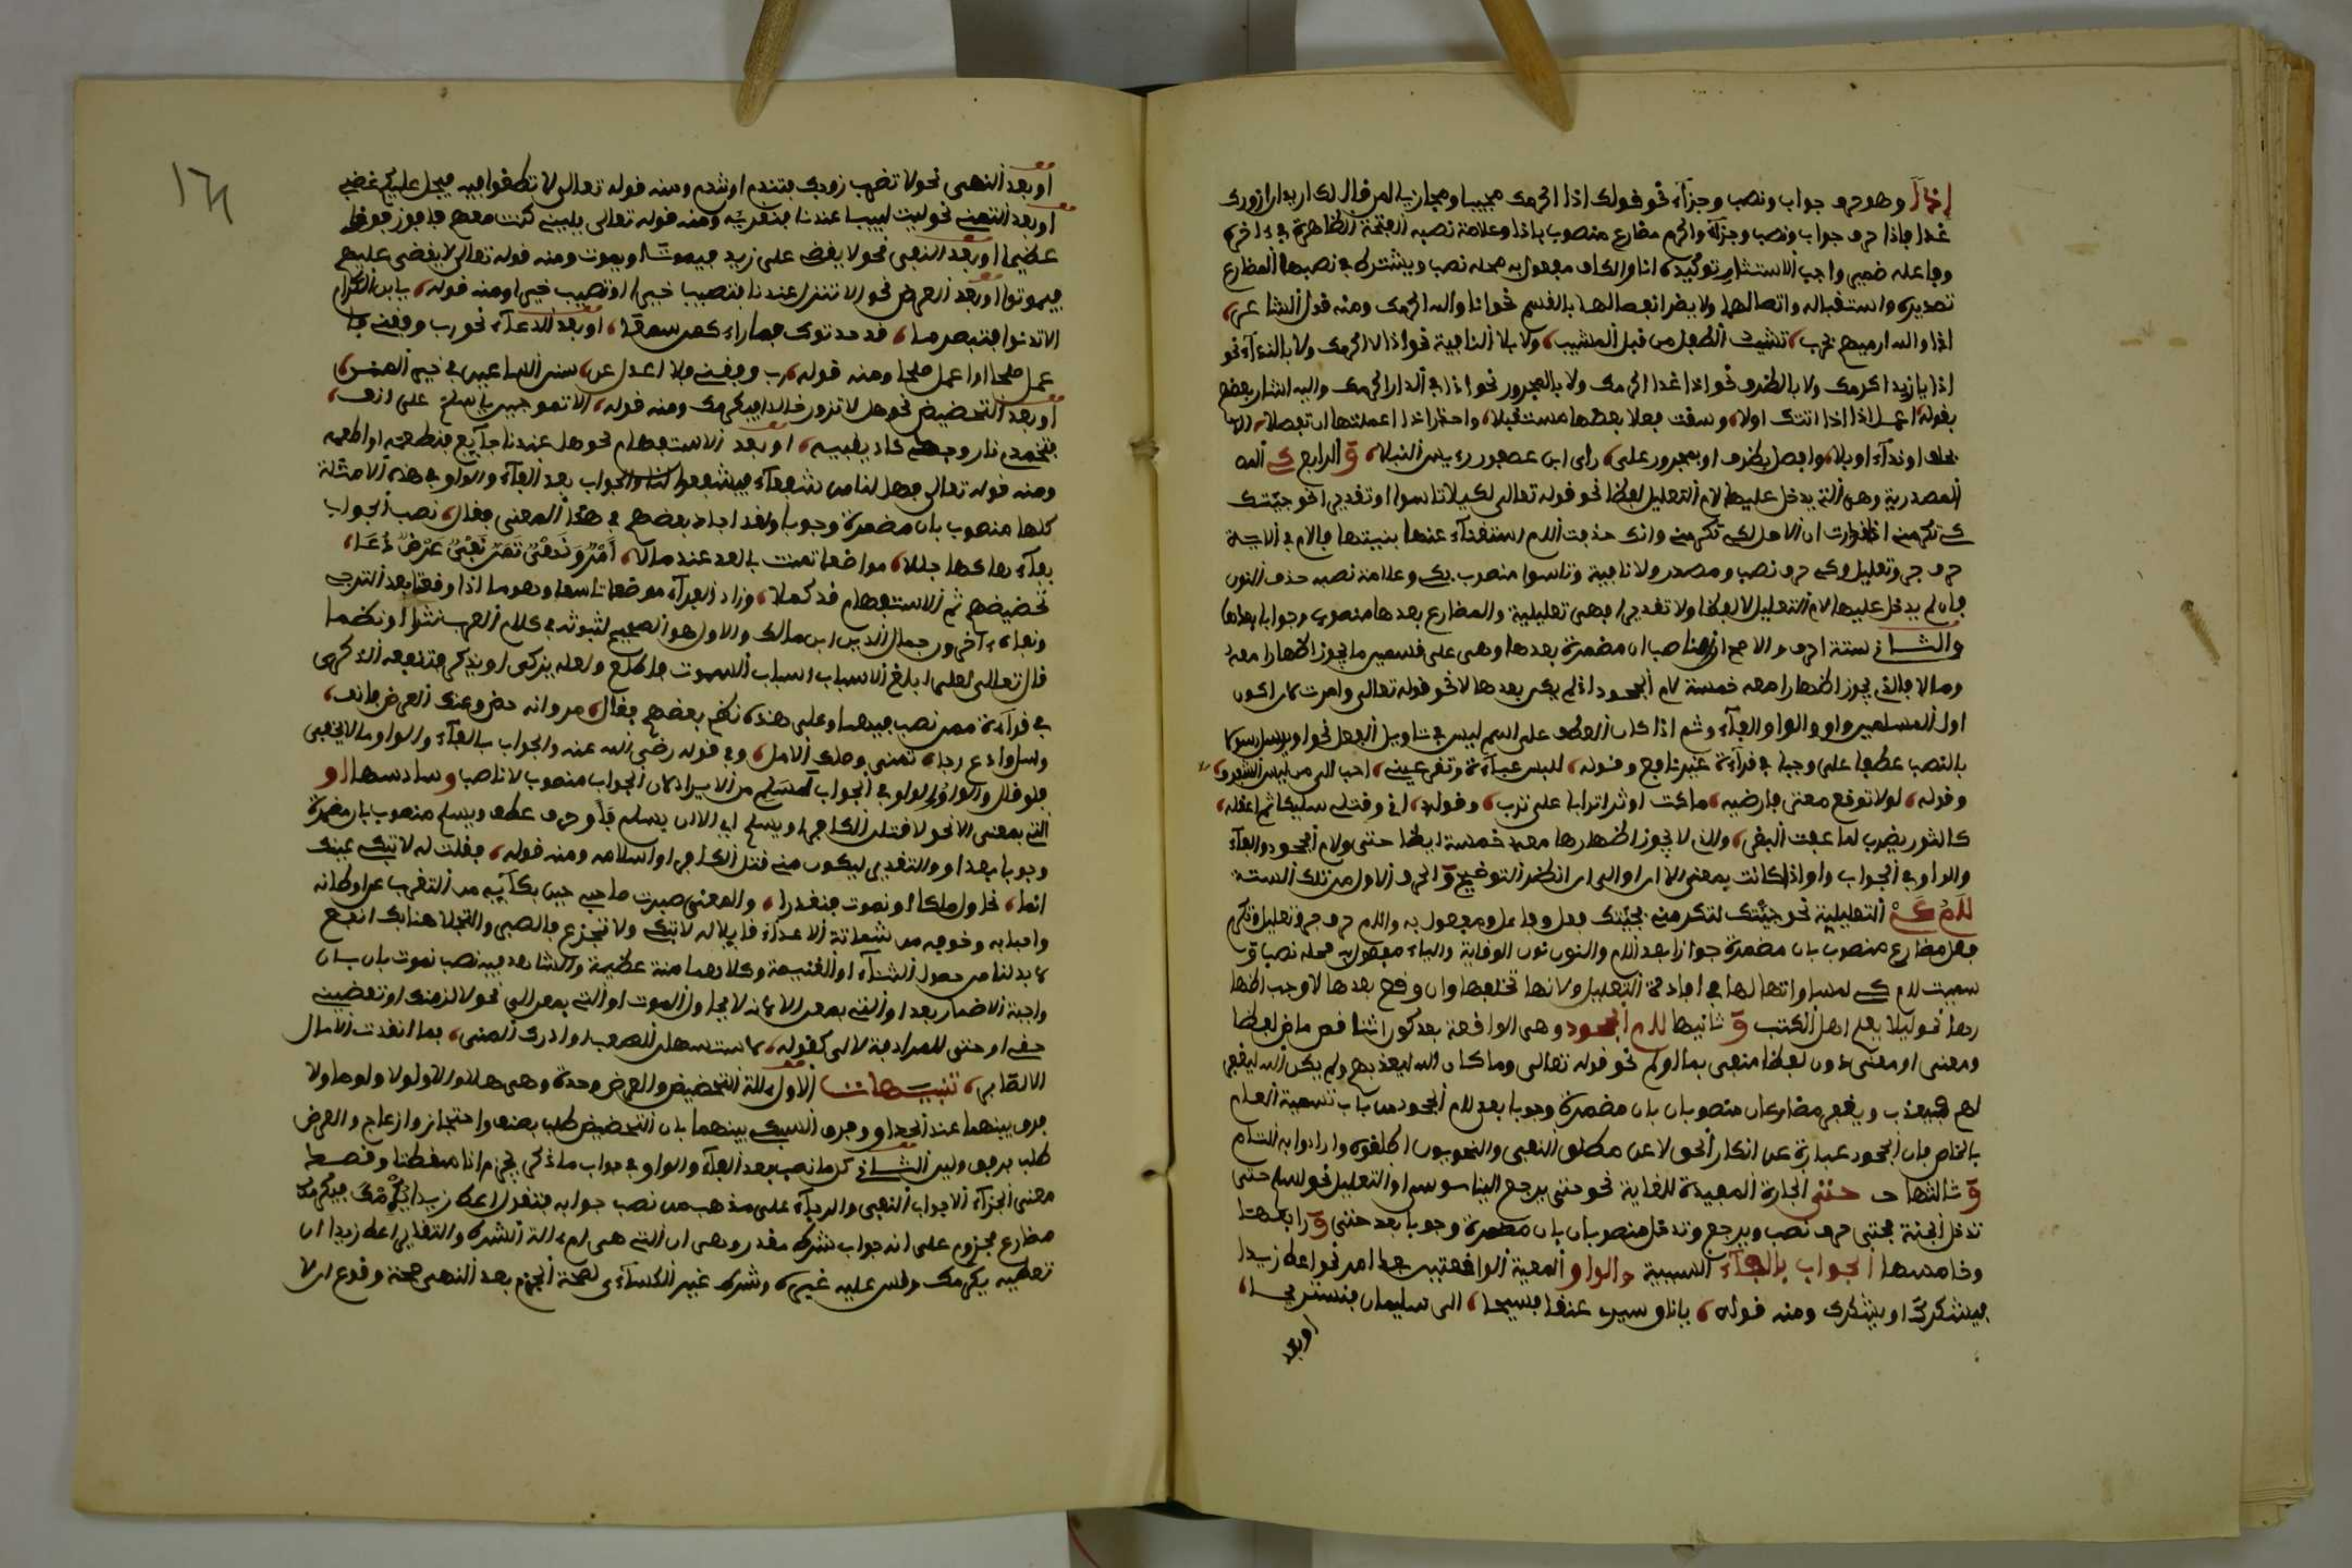 إذاً وهو حرف جواب ونصب وجزآء نحو قولك اذا اكرمك مجيبا ومجازيا لمن قال لك اريد ان ازورك
غدا فاذا حرف جواب ونصب وجزآء واكرم مضارع منصوب باذا وعلامة نصبه الفتحة الظاهرة في ءاخره
وفاعله ضمير واجب الاستتار توكيده انا والكاف مفعول به محله نصب ويشترك في نصبها المضارع
تصديره واستقباله واتصالها ولا يضر انفصالها بالقسم نحو اذا والله اكرمك ومنه قول الشاعر،
اذا والله نرميهم بحرب، تشيب الطفل من قبل المشيب، ولا بلا النافية نحو اذا لا اكرمك ولا بالندآء نحو
اذا يا زيد اكرمك ولا بالظرف نحو اذا غدا اكرمك ولا بالمجرور نحو اذا في الدار اكرمك واليه اشار بعضهم
بقوله، اعمل اذا اذا اتتك اولا، وسقت فعلا بعدها مستقبلا، واحذر اذا اعملتها ان تفصلا، الا
بحلف او ندآء او بلا، وافصل بظرف او بمجرور على، رأي ابن عصفور رءيس النبلا، و الرابع كي
المصدرية وهي التي يدخل عليها لام التعليل لفظا نحو قوله تعالى لكيلا تاسوا او تقديرا نحو جئتك
كي تكرمني اذا قدرت ان الاصل لكي تكرمني وانك حذفت اللام استغنآء عنها بنيتها فاللام في الاية
حرف جر وتعليل وكي حرف نصب ومصدر ولا نافية وتاسوا منصوب بكي وعلامة نصبه حذف النون
فان لم يدخل عليها لام التعليل لا لفظا ولا تقديرا فهي تعليلية والمضارع بعدها منصوب وجوبا
والثاني ستة احرف والاصح ان الناصب ان مضمرة بعدها وهي على قسمين ما يجوز اظهارا معه
وما لا فالذي يجوز اظهارا معه خمسة لام الجحود اذا لم يكن بعدها لا نحو قوله تعالى وامرت لان اكون
اول المسلمين واو والواو والفآء وثم اذا كان العطف على اسم ليس في تاويل الفعل نحو او يرسل رسولا
بالنصب عطفا على وحيا في قرآءة غير نافع وقوله، للبس عبآءة وتقر عيني، احب الي من لبس الشفوف،
وقوله، لولا توقع معتر فارضيه، ما كنت اوثر اترابا على ترب، وقوله، اني وقتلي سليكا ثم اعقله،
كالثور يضرب لما عافت البقر، والذي لا يجوز اظهارها معه خمسة ايضا حتى ولام الجحود والفآء
والواو في الجواب واو اذا كانت بمعنى الا او الى ان انظر التوضيح و الحرف الاول من تلك الستة
لام كي التعليلية نحو جئتك لتكرمني فجئتك فعل وفاعل ومفعول به واللام حرف جر وتعليل وتكرم
فعل مضارع منصوب بان مضمرة جوازا بعد اللام والنون نون الوقاية والياء مفعول به محله نصب
سميت لام كي لمساواتها لها في افادة التعليل ولانها تخلفها وان وقع بعدها لا وجب اظهارها
نحو ليلا يعلم اهل الكتب و ثانيها لام الجحود وهي الواقعة بعد كون ناقص ماض لفظا
ومعنى او معنى دون لفظا منفي بما او لم نحو قوله تعالى وما كان الله ليعذبهم ولم يكن الله ليغفر
لهم فيعذب ويغفر مضارعان منصوبان بان مضمرة وجوبا بعد لام الجحود من باب تسمية العام
بالخاص فان الجحود عبارة عن انكار الحق لا عن مطلق النفي والنحويون اطلقوه وارادوا به الثاني
و ثالثها حتى الجارة المفيدة للغاية نحو حتى يرجع الينا موسى او التعليل نحو اسلم حتى
تدخل الجنة فحتى حرف نصب ويرجع وتدخل منصوبان بان مضمرة وجوبا بعد حتى و رابعها
وخامسها الجواب بالفآء السببية والواو المعية الواقعتين بعد امر نحو اعط زيدا
فيشكرك او يشكرك ومنه قوله، يا ناق سيري عنقا فسيحا، الى سليمان فنستريحا،
او بعد
او بعد النهي نحو لا تضرب زيدا فتندم او تندم ومنه قوله تعالى لا تطغوا فيه فيحل عليكم غضبي
او بعد التمني نحو ليت لبيبا عندنا فنقريه ومنه قوله تعالى يليتني كنت معهم فافوز فوزا
عظيما او بعد النفي نحو لا يقضى على زيد فيموت او يموت ومنه قوله تعالى لا يقضى عليهم
فيموتوا او بعد العرض نحو الا تنزل عندنا فتصيب خيرا او تصيب خيرا ومنه قوله، يا ابن الكرام
الا تدنوا فتبصر ما، قد حدثوك فما راء كمن سمعا، او بعد الدعآء نحو رب وفقني فا
عمل صلحا او اعمل صلحا ومنه قوله، رب وفقني فلا اعدل عن، سنن الساعين في خير السنن،
او بعد التحضيض نحو هل لا تزور خالدا فيكرمك ومنه قوله،
فتخمدي نار وجد كاد يفنيه، او بعد الاستفهام نحو هل عندنا جآئع فنطعمه او اطعمه
ومنه قوله تعالى فهل لنا من شفعآء فيشفعوا لنا والجواب بعد الفآء والواو في هذه الامثلة
كلها منصوب بان مضمرة وجوبا ولقد اجاد بعضهم في هذا المعنى فقال، نصب الجواب
بفآء مواضعا تمنت بالعد عند ملا، أمر ونهي تمن نفي عرض دعا،
تحضيضهم ثم الاستفهام قد كملا، وزاد الفرآء موضعا تاسعا وهو ما اذا وقعا بعد الترجي
ونفاه ءاخرون جمال الدين ابن مالك والاول هو الصحيح لثبوته في كلام العرب نثرا او نظما
قال تعالى لعلي ابلغ الاسباب اسباب السموت فاطلع ولعله يزكى او يذكر فتنفعه الذكرى
في قرآءة من نصب فيهما وعلى هذه نظم بعضهم فقال، مر وانه حض وعند العرض فانف،
وسل وادع رجاه تمنى وصلك الامل، وفي قوله رضي الله عنه والجواب بالفآء والواو ما لا يخفى
فلو قال والفآء والواو في الجواب لسلم من الايراد لان الجواب منصوب لا ناصب وسادسها او
التي بمعنى الا نحو لاقتلن الكافر او يسلم اي الا ان يسلم فاو حرف عطف ويسلم منصوب بان مضمرة
وجوبا بعد او والتقدير ليكون مني قتل الكافر او اسلامه ومنه قوله، فقلت له لا تبك عينك
انما، نحاول ملكا او نموت فنعذرا، والمعنى صبرت صاحبي حين بكآئه من التغرب عن اوطانه
واحبابه وخوفه من شماتة الاعدآء قايلا له لا تبك ولا تجزع فالصبر والتجلد هنا بك انفع
واجبة الاضمار بعد او التي بمعنى الا
حتى للمرادفة لالى كقوله، لاستسهلن الصعب او ادرك المنى، فما انقادت الامال
الا لصابر، تنبيهات الاول ءالة التحضيض والعرض وحدة وهي هلا والا ولولا ولوما ولا
فرق بينهما عند الحذاق وفرق السبكي بينهما بان التحضيض طلب بعنف واحتجاز وازعاج والعرض
طلب برفق ولين الثاني كل ما نصب بعد الفآء والواو في جواب ما ذكر يجزم اذا سقطتا وقصد
معنى الجزآء الا جواب النفي والرجآء على مذهب من نصب جوابه فتقول اعط زيدا يكرمك فيكرمك
مضارع مجزوم على انه جواب شرط مقدر وهي ان التي هي ام ءالة الشرط والتقدير اعط زيدا ان
تعطيه يكرمك وقس عليه غيره وشرط غير الكسآءي لصحة الجزم بعد النهي صحة وقوع ان لا